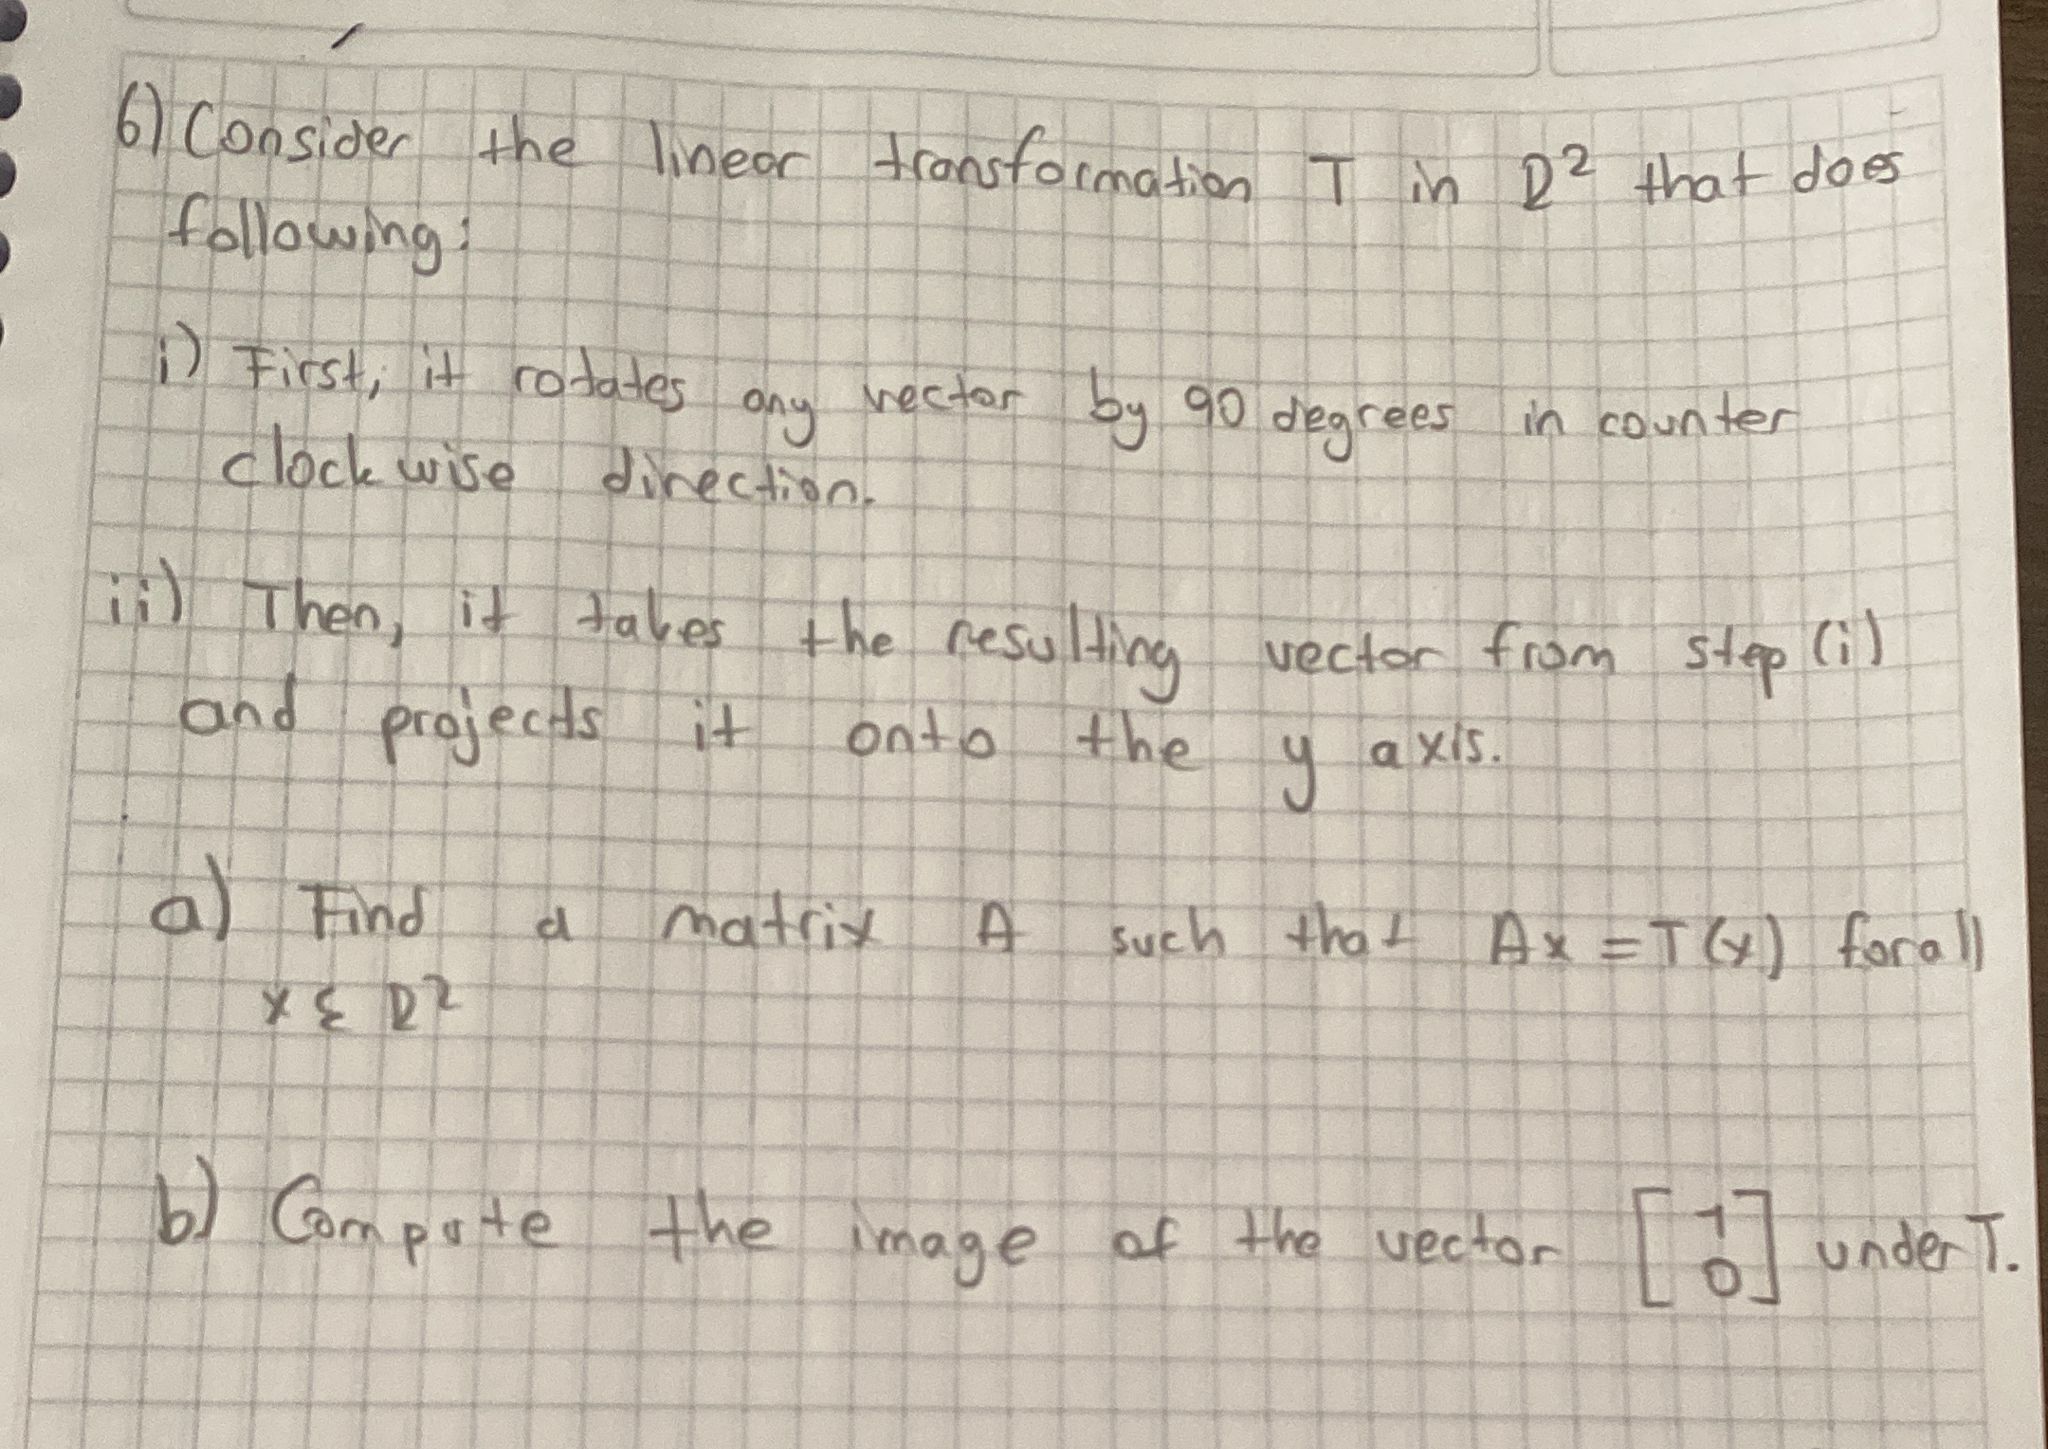 6) Consider the linear transformation T in R² that does
following:
i) First, it rotates any vector by 90 degrees in counter
clockwise direction.
ii) Then, it takes the resulting vector from step (i)
and projects it onto the y axis.
a) Find a matrix A such that Ax = T(x) for all
x ε R²
b) Compute the image of the vector [1 0] under T.